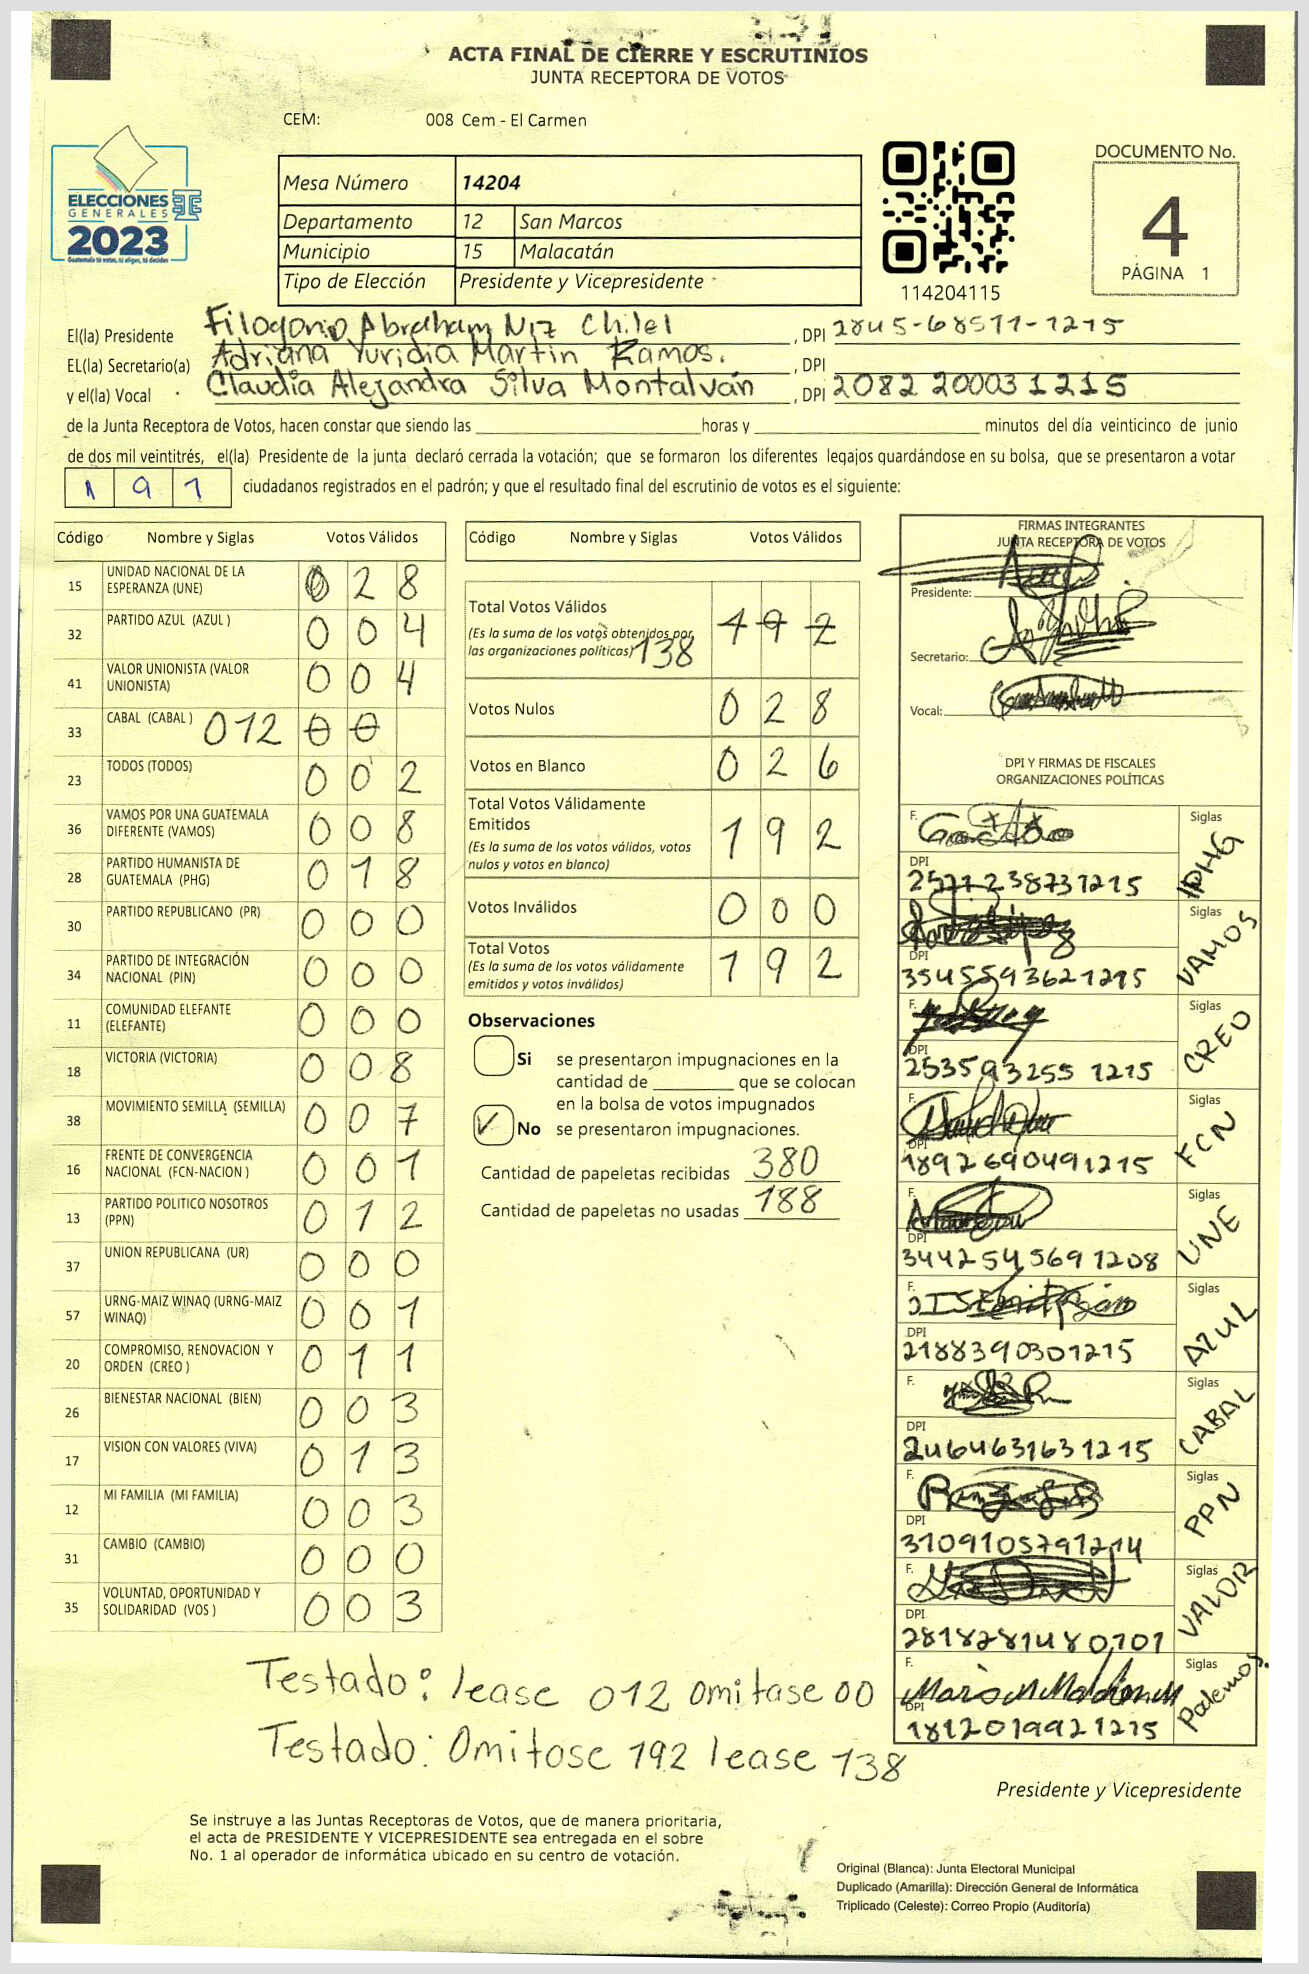 ACTA FINAL DE CIERRE Y ESCRUTINIOS
JUNTA RECEPTORA DE VOTOS
CEM: 008 Cem - El Carmen
ELECCIONES
GENERALES
2023
Guatemala tú votas, tú eliges, tú decides
Mesa Número 14204
Departamento 12 San Marcos
Municipio 15 Malacatán
Tipo de Elección Presidente y Vicepresidente
114204115
DOCUMENTO No.
4
PÁGINA 1
El(la) Presidente Filogonio Abraham Niz Chilel , DPI 2845-68511-1215
EL(la) Secretario(a) Adriana Yuridia Martin Ramos. , DPI
y el(la) Vocal Claudia Alejandra Silva Montalván , DPI 2082 20003 1215
de la Junta Receptora de Votos, hacen constar que siendo las horas y minutos del día veinticinco de junio
de dos mil veintitrés, el(la) Presidente de la junta declaró cerrada la votación; que se formaron los diferentes legajos guardándose en su bolsa, que se presentaron a votar
191 ciudadanos registrados en el padrón; y que el resultado final del escrutinio de votos es el siguiente:
Código Nombre y Siglas Votos Válidos
15 UNIDAD NACIONAL DE LA ESPERANZA (UNE) 0 2 8
32 PARTIDO AZUL (AZUL ) 0 0 4
41 VALOR UNIONISTA (VALOR UNIONISTA) 0 0 4
33 CABAL (CABAL ) 012 0 0
23 TODOS (TODOS) 0 0 2
36 VAMOS POR UNA GUATEMALA DIFERENTE (VAMOS) 0 0 8
28 PARTIDO HUMANISTA DE GUATEMALA (PHG) 0 1 8
30 PARTIDO REPUBLICANO (PR) 0 0 0
34 PARTIDO DE INTEGRACIÓN NACIONAL (PIN) 0 0 0
11 COMUNIDAD ELEFANTE (ELEFANTE) 0 0 0
18 VICTORIA (VICTORIA) 0 0 8
38 MOVIMIENTO SEMILLA (SEMILLA) 0 0 7
16 FRENTE DE CONVERGENCIA NACIONAL (FCN-NACION ) 0 0 1
13 PARTIDO POLITICO NOSOTROS (PPN) 0 1 2
37 UNION REPUBLICANA (UR) 0 0 0
57 URNG-MAIZ WINAQ (URNG-MAIZ WINAQ) 0 0 1
20 COMPROMISO, RENOVACION Y ORDEN (CREO ) 0 1 1
26 BIENESTAR NACIONAL (BIEN) 0 0 3
17 VISION CON VALORES (VIVA) 0 1 3
12 MI FAMILIA (MI FAMILIA) 0 0 3
31 CAMBIO (CAMBIO) 0 0 0
35 VOLUNTAD, OPORTUNIDAD Y SOLIDARIDAD (VOS ) 0 0 3
Código Nombre y Siglas Votos Válidos
Total Votos Válidos 1 9 2
(Es la suma de los votos obtenidos por
las organizaciones políticas) 138
Votos Nulos 0 2 8
Votos en Blanco 0 2 6
Total Votos Válidamente
Emitidos 1 9 2
(Es la suma de los votos válidos, votos
nulos y votos en blanco)
Votos Inválidos 0 0 0
Total Votos 1 9 2
(Es la suma de los votos válidamente
emitidos y votos inválidos)
Observaciones
Si se presentaron impugnaciones en la
cantidad de que se colocan
en la bolsa de votos impugnados
✓ No se presentaron impugnaciones.
Cantidad de papeletas recibidas 380
Cantidad de papeletas no usadas 188
FIRMAS INTEGRANTES
JUNTA RECEPTORA DE VOTOS
Presidente:
Secretario:
Vocal:
DPI Y FIRMAS DE FISCALES
ORGANIZACIONES POLÍTICAS
F. Siglas PHG
DPI 2571238731215
F. Siglas VAMOS
DPI 3545593621215
F. Siglas CREO
DPI 253593255 1215
F. Siglas FCN
DPI 1892690491215
F. Siglas UNE
DPI 3442545691208
F. Siglas AZUL
DPI 2188390301215
F. Siglas CABAL
DPI 2464631631215
F. Siglas PPN
DPI 3109105791214
F. Siglas VALOR
DPI 2818281480101
F. Siglas Podemos.
DPI 1812019921215
Testado: lease 012 omitase 00
Testado: Omitose 192 lease 138
Presidente y Vicepresidente
Se instruye a las Juntas Receptoras de Votos, que de manera prioritaria,
el acta de PRESIDENTE Y VICEPRESIDENTE sea entregada en el sobre
No. 1 al operador de informática ubicado en su centro de votación.
Original (Blanca): Junta Electoral Municipal
Duplicado (Amarilla): Dirección General de Informática
Triplicado (Celeste): Correo Propio (Auditoría)